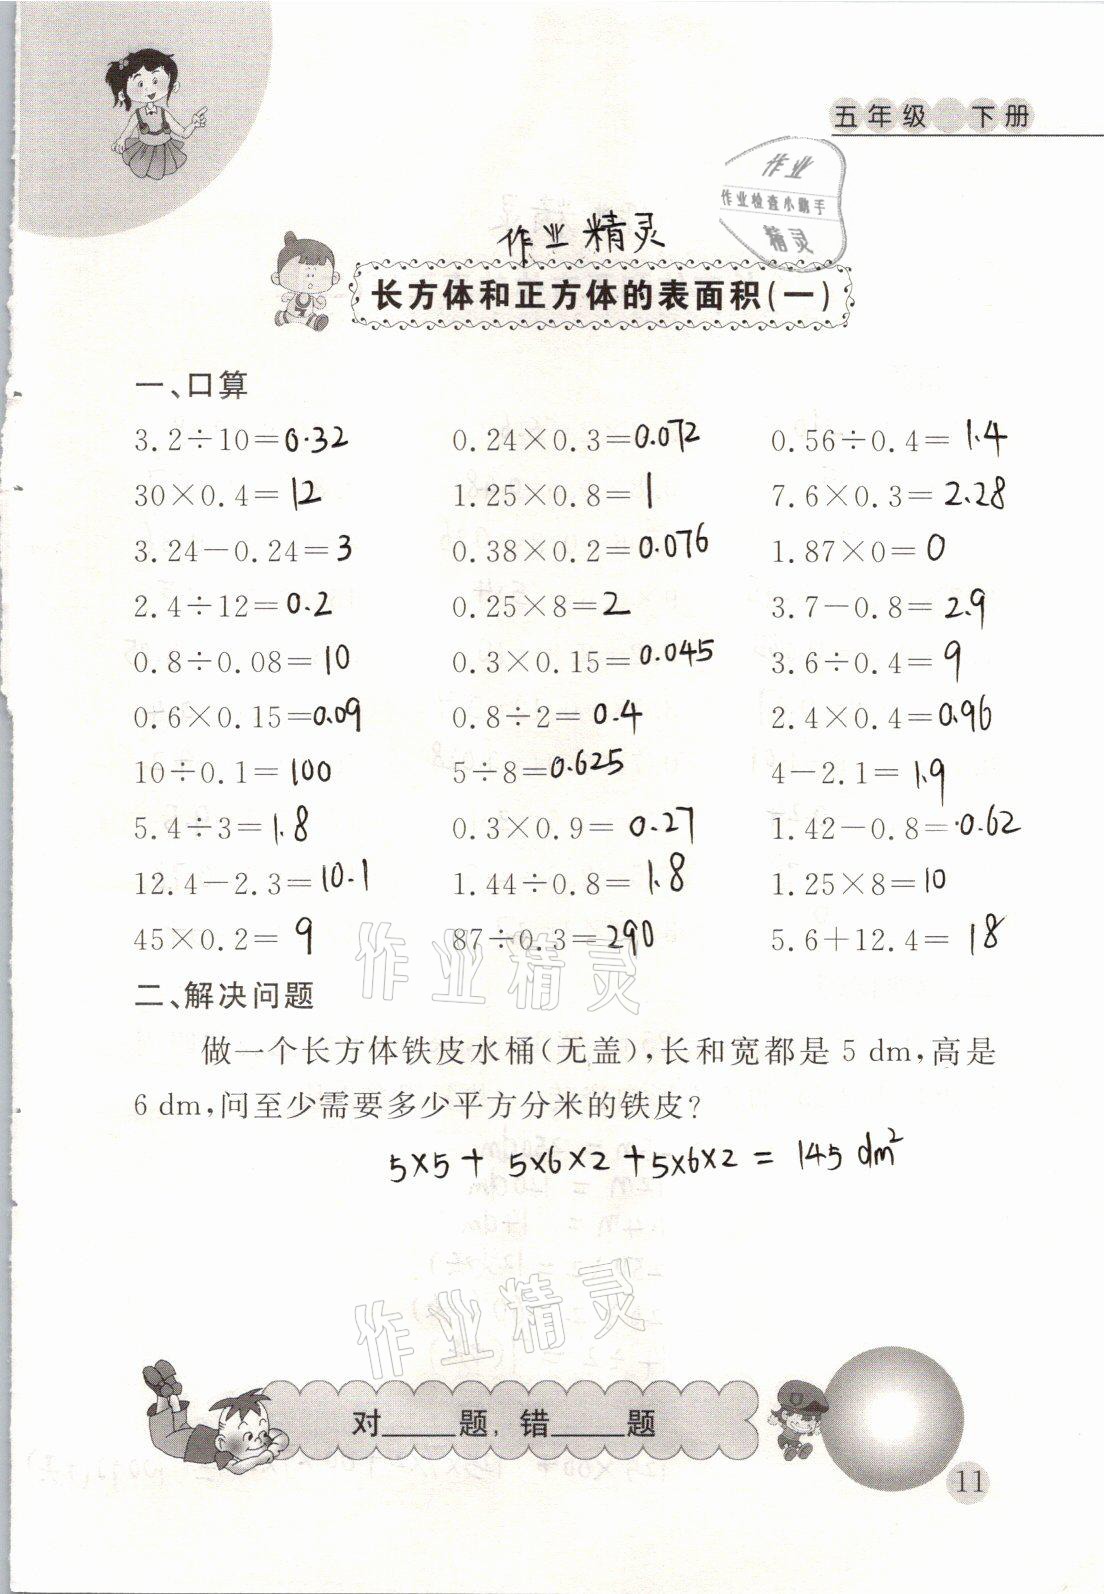 五年级 下册
作业
作业检查小助手
精灵
作业精灵
长方体和正方体的表面积(一)
一、口算
3.2÷10=0.32 0.24×0.3=0.072 0.56÷0.4=1.4
30×0.4=12 1.25×0.8=1 7.6×0.3=2.28
3.24-0.24=3 0.38×0.2=0.076 1.87×0=0
2.4÷12=0.2 0.25×8=2 3.7-0.8=2.9
0.8÷0.08=10 0.3×0.15=0.045 3.6÷0.4=9
0.6×0.15=0.09 0.8÷2=0.4 2.4×0.4=0.96
10÷0.1=100 5÷8=0.625 4-2.1=1.9
5.4÷3=1.8 0.3×0.9=0.27 1.42-0.8=0.62
12.4-2.3=10.1 1.44÷0.8=1.8 1.25×8=10
45×0.2=9 87÷0.3=290 5.6+12.4=18
作业精灵
二、解决问题
做一个长方体铁皮水桶(无盖),长和宽都是5 dm,高是
6 dm,问至少需要多少平方分米的铁皮?
5×5+5×6×2+5×6×2=145 dm²
作业精灵
对____题,错____题
11